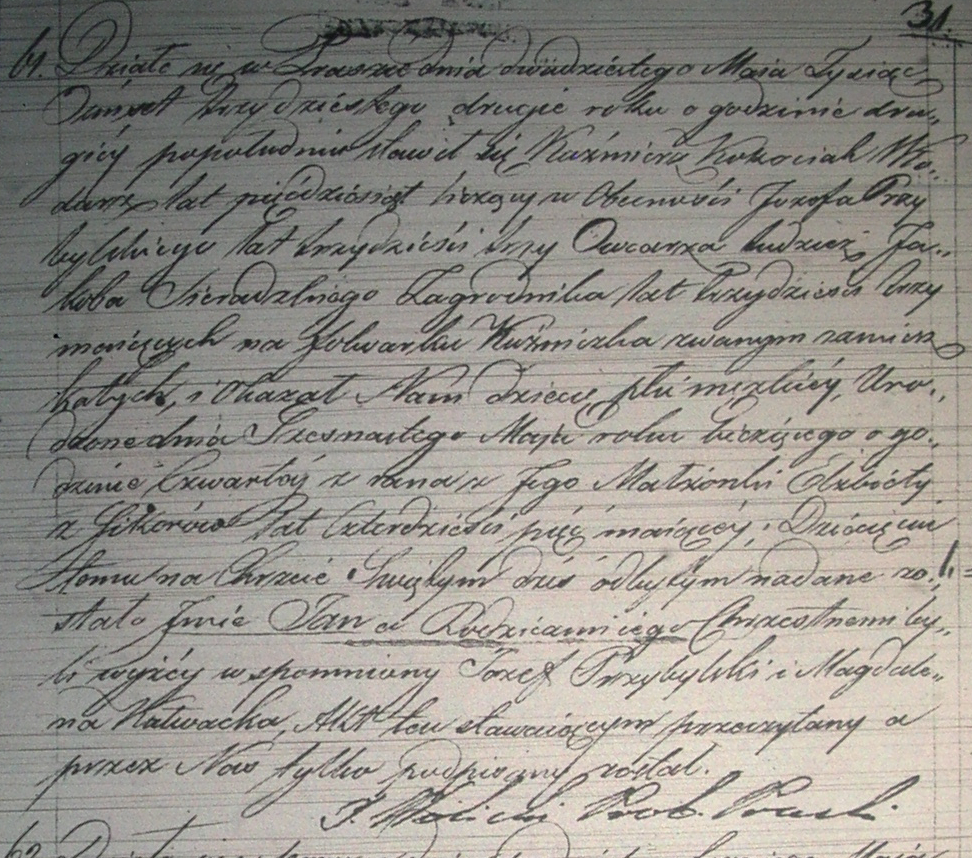 31.
61. Działo się w Praszce dnia dwudziestego Maja Tysiąc
Ośmset trzydziestego drugie roku o godzinie dru„
giey popołudniu stawił się Kaźmierz Kokociak Wło„
darz lat pięćdziesiąt liczący w Obecności Józefa Przy
bylskiego lat trzydzieści trzy Owczarza tudzież Ja„
koba Sieradzkiego Zagrodnika lat trzydzieści trzy
maiących na folwarku Kuźniczka zwanym zamiesz
kałych, i okazał Nam dziecie płci męzkiéy, Uro„
dzone dnia Szesnastego Maja roku bieżącego o go„
dzinie Czwartéy z rana z Jego Małżonki Elżbiéty
z lat Czterdzieści pięć maiącéy; Dziécięciu
temu na Chrzcie Świętym dziś odbytym nadane zo„
stało Jmie Jan a Rodzicami iego Chrzestnemi by„
li wyżéy wspomniony Józef Przybylski i Magdale„
na Akt ten stawaiącym przeczytany a
przez Nas tylko podpisany został.
Prob.
62.